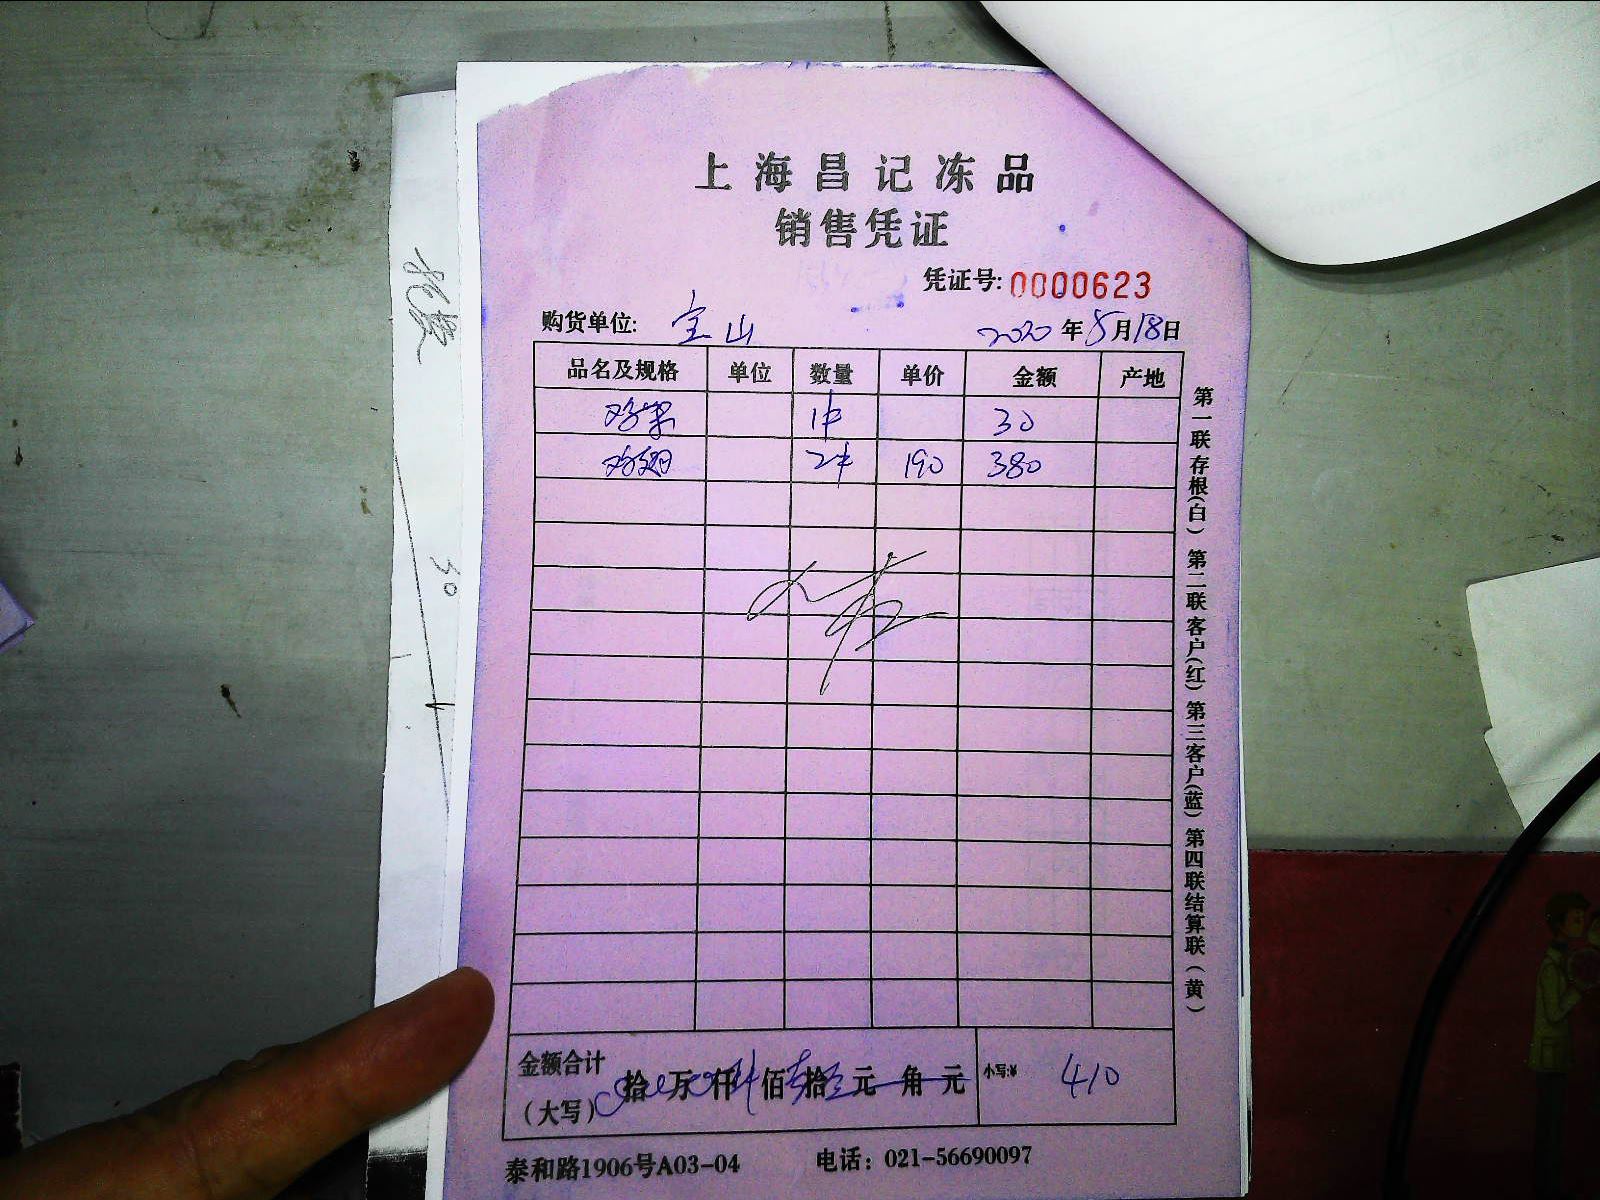 上海昌记冻品
销售凭证
凭证号: 0000623
购货单位: 宝山 2020年5月18日
品名及规格 单位 数量 单价 金额 产地
鸡架 1件 30
鸡翅 2件 190 380
30
金额合计 拾万仟佰拾元角元 小写:¥ 410
(大写)
泰和路1906号A03-04 电话: 021-56690097
第一联存根(白) 第二联客户(红) 第三客户(蓝) 第四联结算联(黄)